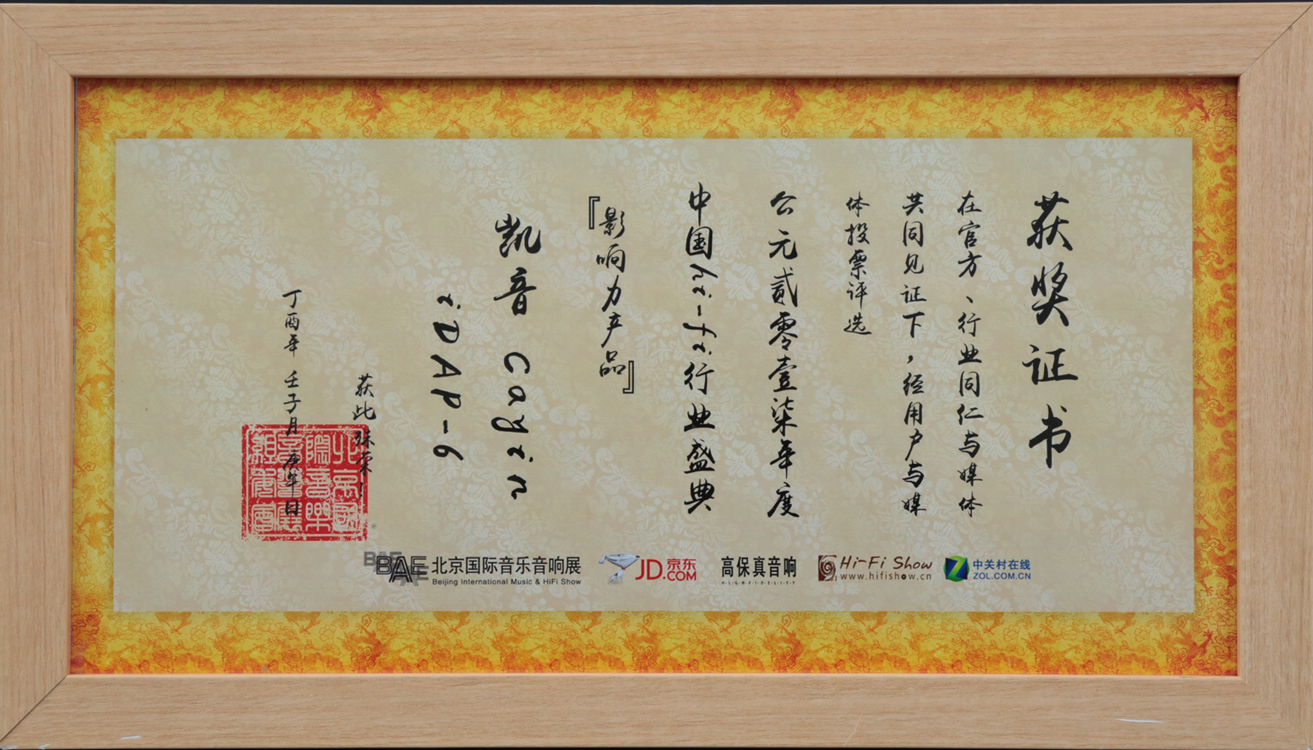 获奖证书
在官方、行业同仁与媒体
共同见证下，经用户与媒
体投票评选
公元贰零壹柒年度
中国hi-fi行业盛典
『影响力产品』
凯音 Cayin
iDAP-6
获此殊荣！
丁酉年 壬子月 庚午日
BAE 北京国际音乐音响展
Beijing International Music & HiFi Show
JD 京东
.COM
高保真音响
HIGHFIDELITY
Hi-Fi Show
www.hifishow.cn
中关村在线
ZOL.COM.CN